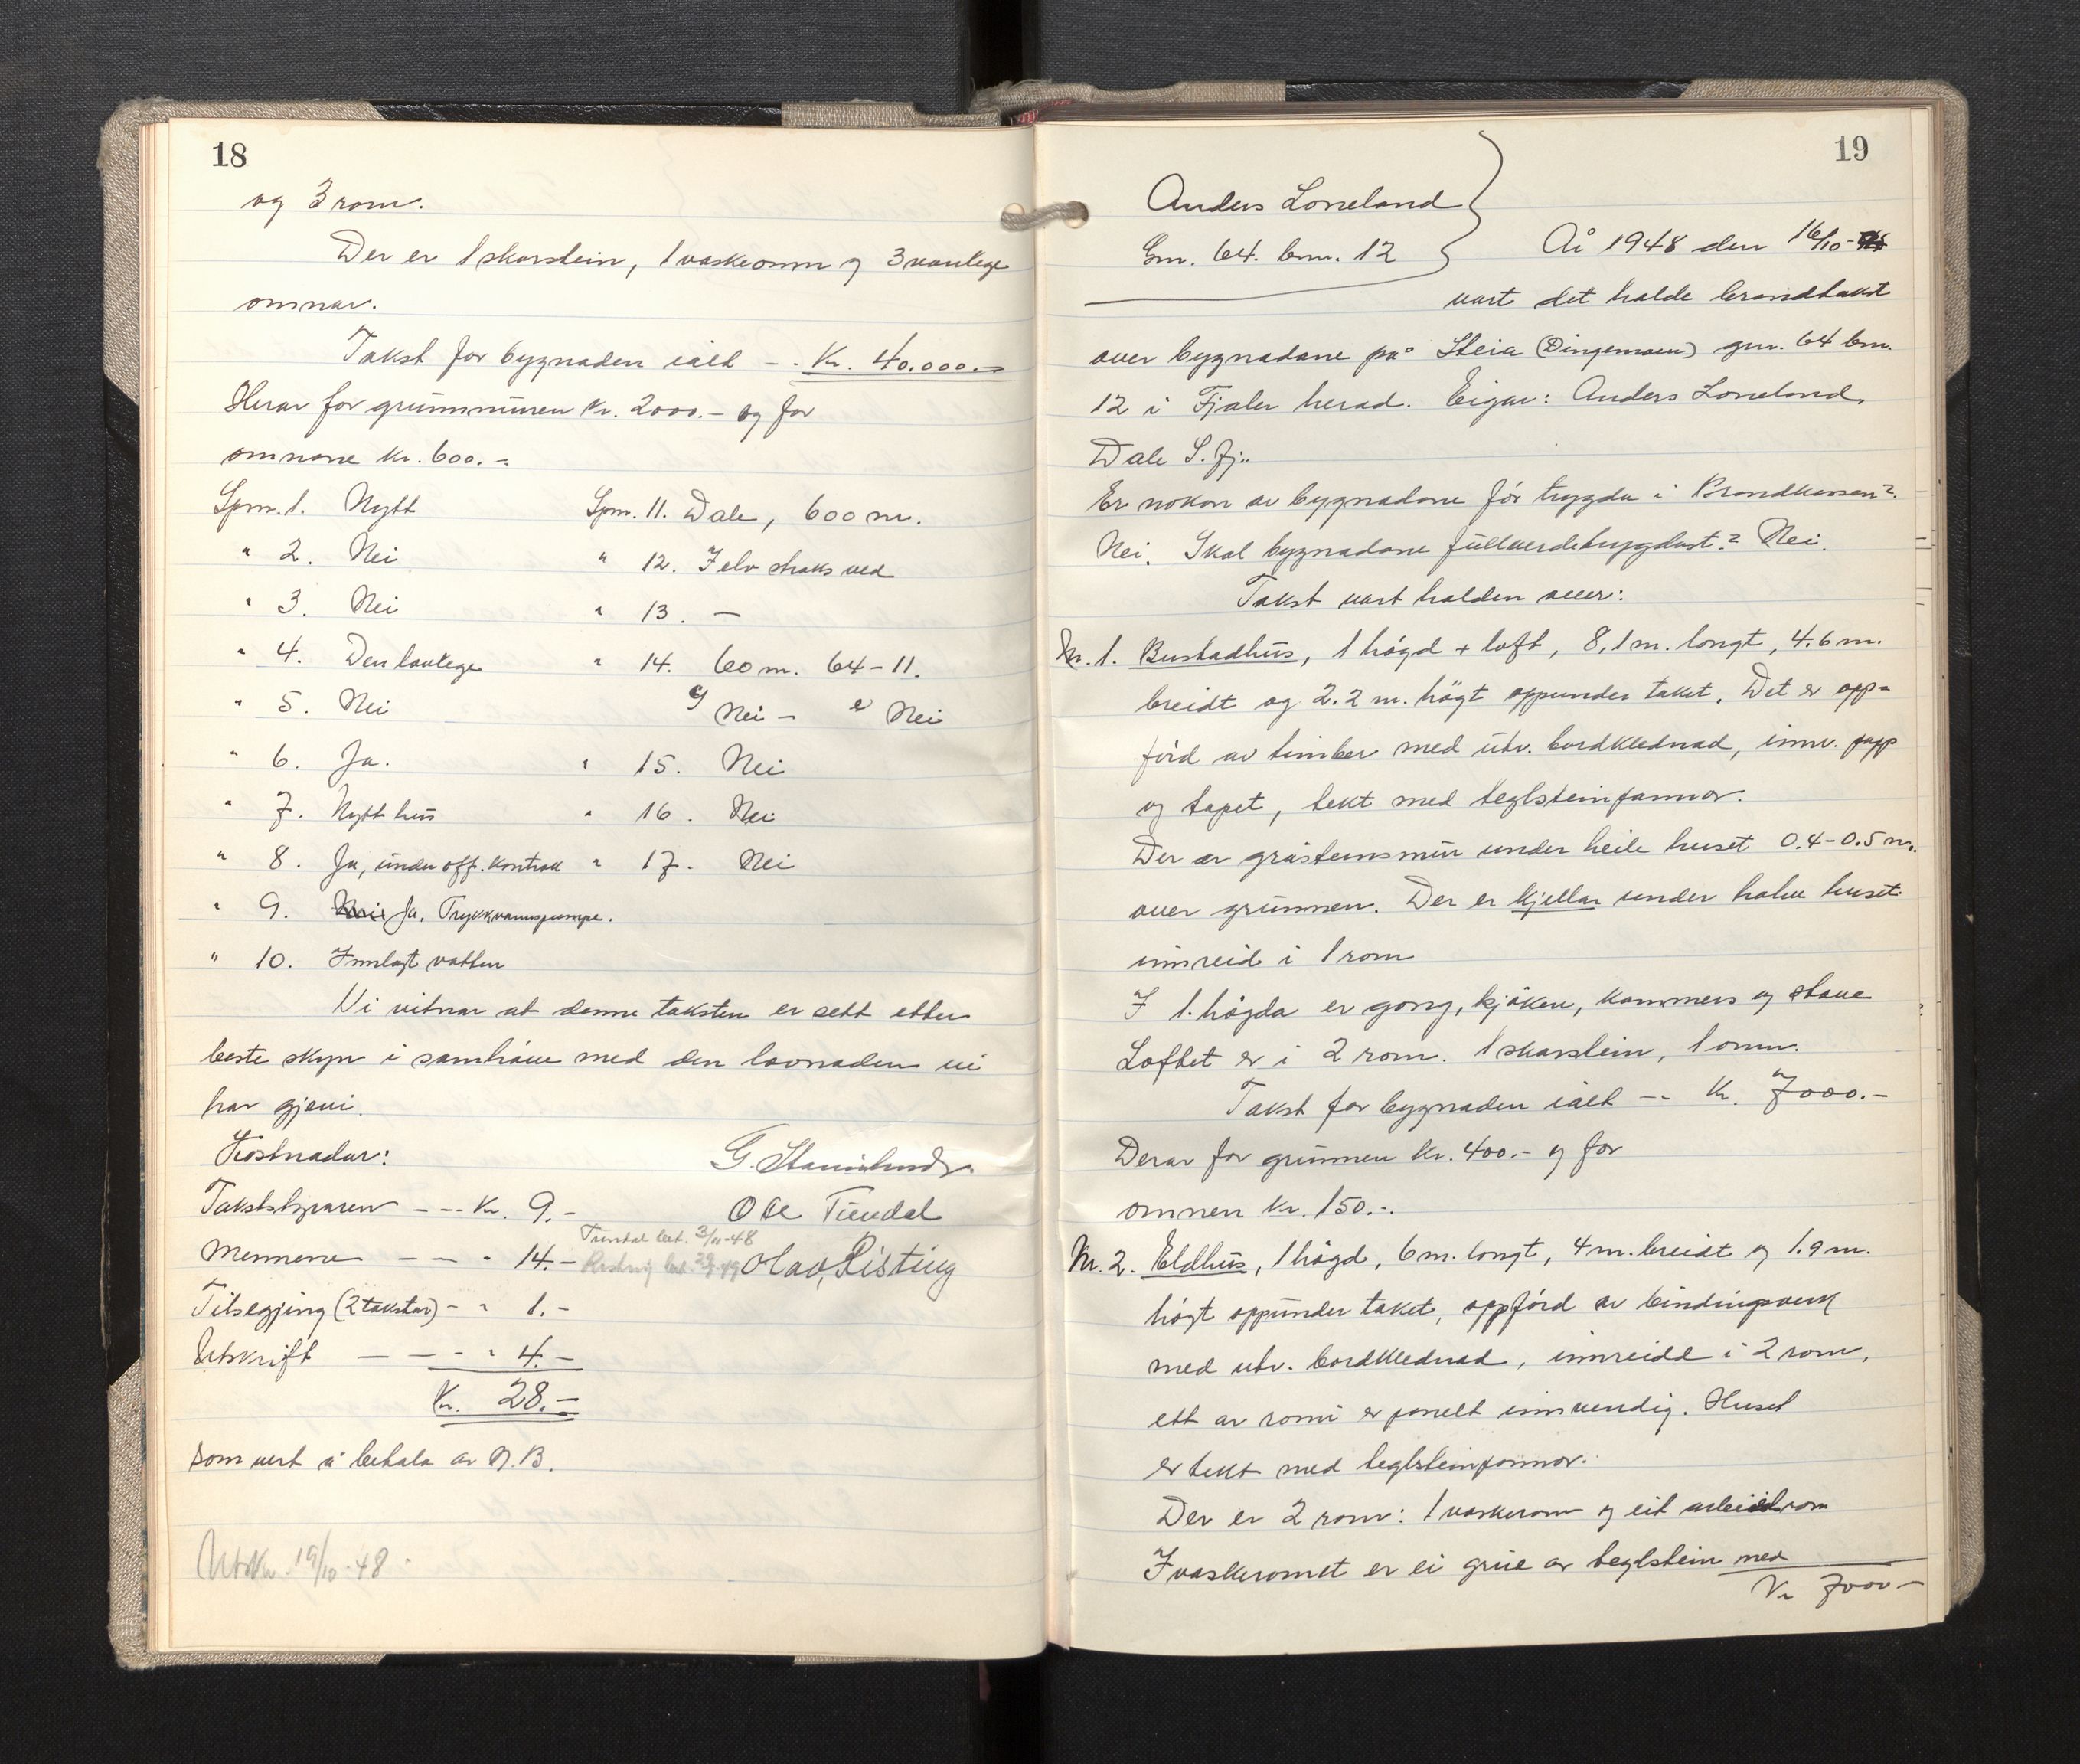 18
og 3 rom.
Der er 1 skorstein, 1 vaskeomn og 3 vanlege
omnar.
Takst for bygnaden ialt -. Kr. 40.000.-
Herav for grunnmuren kr. 2000.- og for
omnane kr. 600.-
Spm. 1. Nytt
" 2. Nei
" 3. Nei
" 4. Den lovlege
" 5. Nei
" 6. Ja.
" 7. Nytt hus
" 8. Ja, under off. kontrak
" 9. Ja. Trykkvannspumpe.
" 10. Innlagt vatten
Spm. 11. Dale, 600 m.
" 12. I elv straks ved
" 13. —
" 14. 60 m. 64-11.
g Nei - e Nei
" 15. Nei
" 16. Nei
" 17. Nei
Vi vitnar at denne taksten er sett etter
beste skyn i samhøve med den lovnaden vi
har gjevi.
Kostnadar:
Takststyraren --- Kr. 9.-
Mennene — — " 14.-
Tilsegjing (2 takstar) - " 1.-
Utskrift — — - " 4.-
Kr. 28.-
G.
Ole Tundal
Tundal bet. 3/11-48
Olav Risting
som vert å betala av N.B.
Utskr. 19/10-48.
19
Anders Loneland
Gnr. 64. bnr. 12
År 1948 den 16/10-
vart det halde brandtakst
over bygnadane på Steia (Dingemoen) gnr. 64 bnr.
12 i Fjaler herad. Eigar: Anders Loneland,
Dale S. Fj..
Er nokon av bygnadane før trygda i Brandkassen?
Nei. Skal bygnadane fullverdetrygdast? Nei.
Takst vart halden over:
Nr. 1. Bustadhus, 1 høgd + loft, 8,1 m. langt, 4.6 m.
breidt og 2.2 m. høgt oppunder taket. Det er opp-
førd av timber med utv. bordklednad, innv. papp
og tapet, tekt med teglsteinpannor.
Der er gråsteinsmur under heile huset 0.4-0.5 m.
over grunnen. Der er kjellar under halve huset
innreid i 1 rom
I 1. høgda er gong, kjøken, kammers og stove
Loftet er i 2 rom. 1 skorstein, 1 omn.
Takst for bygnaden ialt -- Kr. 7000.-
Derav for grunnen kr. 400.- og for
omnen kr. 150.-.
Nr. 2. Eldhus, 1 høgd, 6 m. langt, 4 m. breidt og 1.9 m.
høgt oppunder taket, oppførd av bindingsverk
med utv. bordklednad, innreidd i 2 rom,
ett av romi er panelt innvendig. Huset
er tekt med teglsteinpannor.
Der er 2 rom: 1 vaskerom og eit arbeidsrom
I vaskeromet er ei grue av teglstein med
Kr 7000-